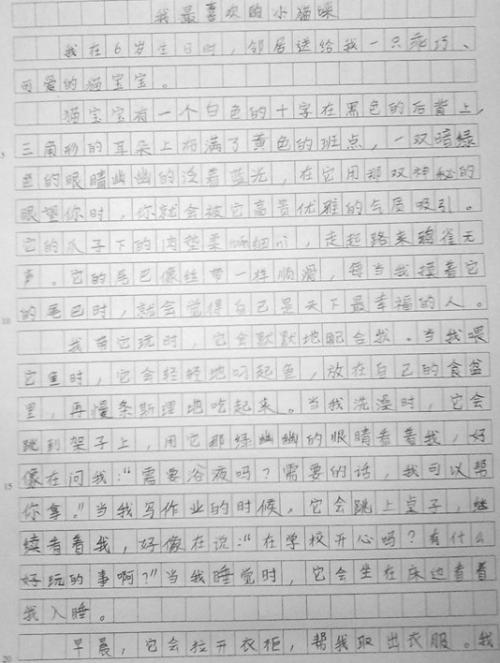 我最喜欢的小猫咪
我在6岁生日时，邻居送给我一只乖巧、
可爱的猫宝宝。
猫宝宝有一个白色的十字在黑色的后背上，
三角形的耳朵上布满了黄色的斑点，一双暗绿
5
色的眼睛幽幽的泛着蓝光，在它用那双神秘的
眼望你时，你就会被它高贵优雅的气质吸引。
它的爪子下的肉垫柔嫩细小，走起路来鸦雀无
声。它的尾巴像丝带一样顺滑，每当我摸着它
的尾巴时，就会觉得自己是天下最幸福的人。
10
我带它玩时，它会默默地配合我。当我喂
它鱼时，它会轻轻地叼起鱼，放在自己的食盆
里，再慢条斯理地吃起来。当我洗澡时，它会
跳到架子上，用它那绿幽幽的眼睛看着我，好
像在问我：“需要浴液吗？需要的话，我可以帮
15
你拿。”当我写作业的时候，它会跳上桌子，继
续看着我，好像在说：“在学校开心吗？有什么
好玩的事啊？”当我睡觉时，它会坐在床边看着
我入睡。
早晨，它会拉开衣柜，帮我取出衣服。我
20